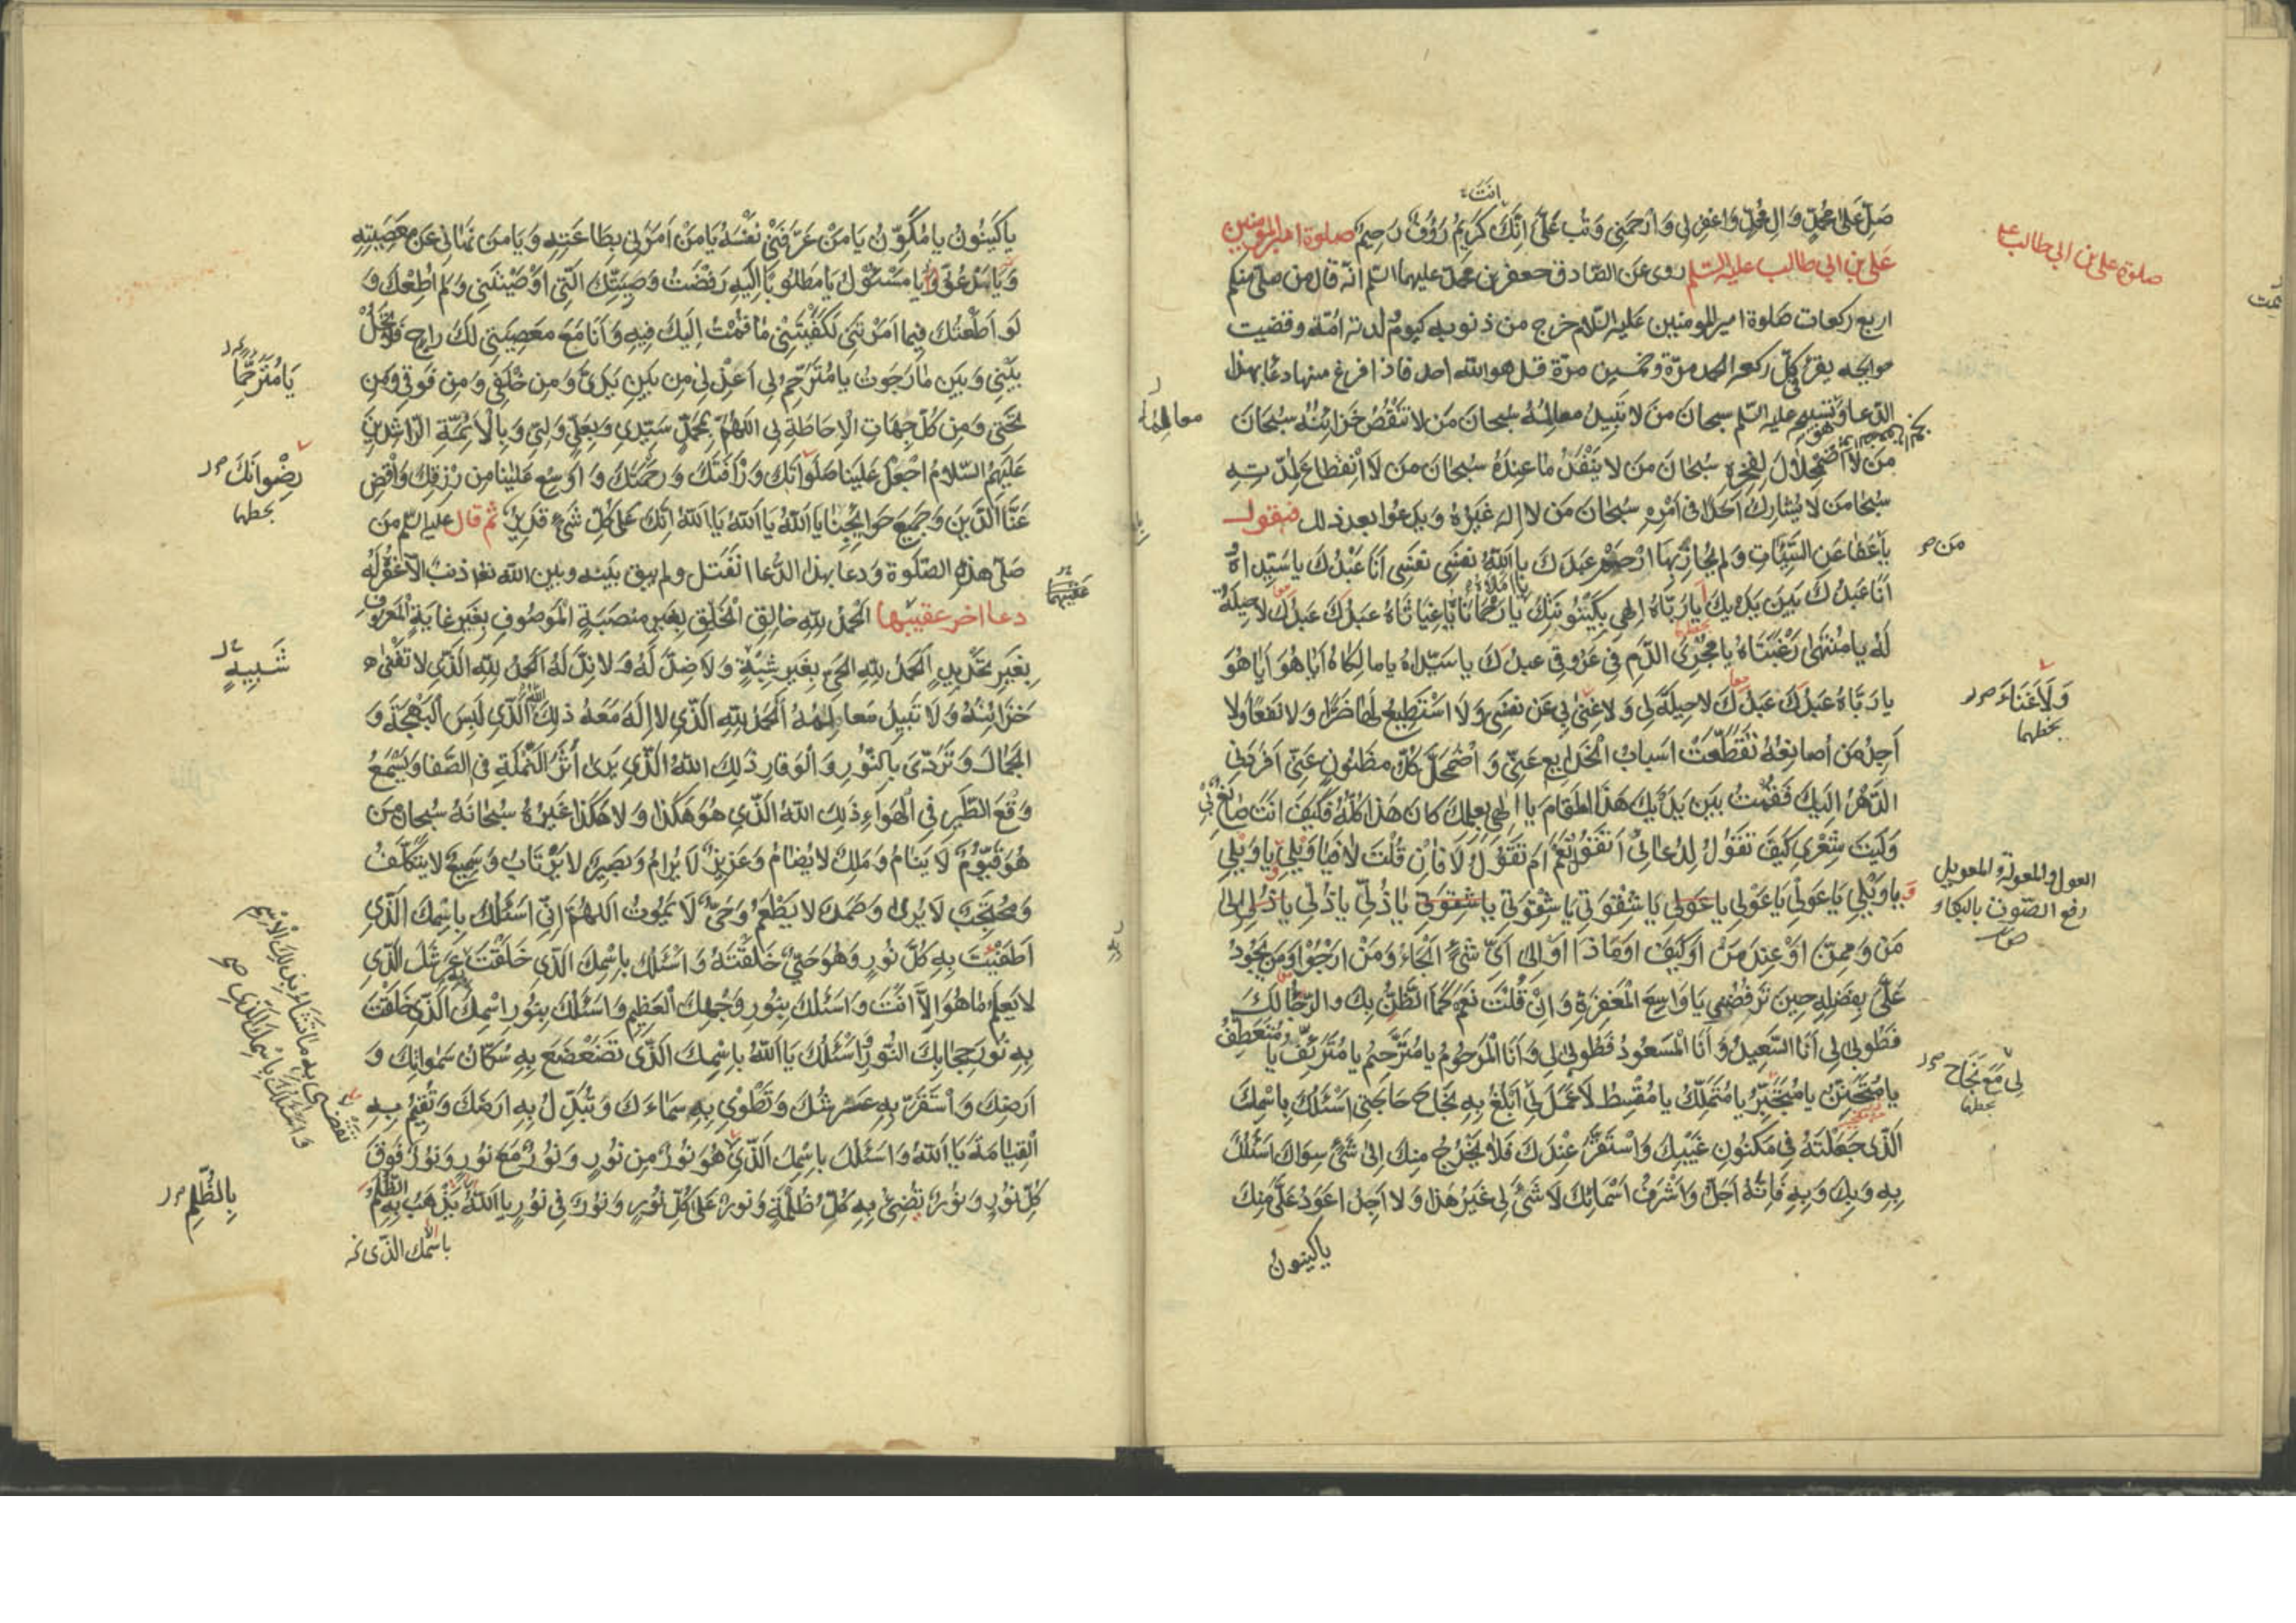 صَلِّ عَلَى مُحَمَّدٍ وَآلِ مُحَمَّدٍ وَاغْفِرْ لِي وَارْحَمْنِي وَتُبْ عَلَيَّ اِنَّكَ كَرِيمٌ رَؤُفٌ رَحِيمٌ صلوة امير المؤمنين
انتَ
صلوة علي بن ابي طالب ع
علي بن ابي طالب عليه السّلم روى عن الصّادق جعفر بن محمد عليهما السلم انّه قال من صلّى منكم
اربع ركعات صلوة امير المومنين عليه السّلام خرج من ذنوبه كيوم ولدته امّه وقضيت
حوايجه يقرء في كلّ ركعة الحمد مرّة وخمسين مرّة قل هو الله احد فاذا فرغ منها دعا بهذا
الدّعا وهو تسبيحه عليه السّلم سبحانَ مَنْ لا تَبِيدُ معالِمُهُ سُبحانَ مَن لا تَنْقُصُ خَزائِنُهُ سُبْحَانَ
معالمهُ
مَن لَا اضْمِحْلالَ لِفَخْرِهِ سُبْحَانَ مَن لا يَنْفَدُ مَا عِنْدَهُ سُبْحَانَ مَن لَا انْقِطَاعَ لِمُدّتِهِ
سُبْحَانَ مَن لا يُشارِكُ اَحَدًا فى اَمْرِهِ سُبْحَانَ مَن لا اِلٰهَ غَيْرُهُ وَيَدعُوا بعد ذلك فيقول
يا مَن عَفَا عَنِ السَّيِّئَاتِ وَلَم يُجَازِ بِهَا ارْحَمْ عَبْدَكَ يا اَللّٰهُ نَفْسِى نَفْسِى اَنَا عَبْدُكَ يا سَيِّدَاهُ
مَن
اَنَا عَبدُكَ بَيْنَ يَدَيْكَ اَيا رَبَّاهُ اِلٰهِي بِكَيْنُونَتِكَ يا رَحْمَانَا يا غِيَاثَاهُ عَبدُكَ عَبدُكَ لا حِيلَةَ
لَهُ يا مُنْتَهٰى رَغْبَتَاهُ يا مُجْرِىَ الدَّمِ فِي عُرُوقِ عبدِكَ يا سَيِّدَاهُ يا مالِكَاهُ اَيَا هُوَ اَيَا هُوَ
يا رَبَّاهُ عَبدُكَ عَبدُكَ لا حِيلَةَ لِى وَلا غِنٰى بِي عَن نَفْسِى وَلَا اسْتَطِيعُ لَهَا ضَرًّا وَلا نَفعًا وَلا
وَلَا غَنَاءَ
بخطهما
اَجِدُ مَن اُصانِعُهُ تَقَطَّعَتْ اَسبابُ الخَدايِعِ عَنّي وَاضْمَحَلَّ كُلُّ مَظْنُونٍ عَنِّي اَفرَدَنِي
الدَّهْرُ اِلَيكَ فَقُمْتُ بَيْنَ يَدَيْكَ هَذَا المَقَامَ يا اِلٰهِي بعِلمِكَ كانَ هٰذا كُلُّهُ فَكَيْفَ انتَ صَانِعٌ بِي
وَلَيْتَ شِعْرِي كَيْفَ تَقُولُ لِدُعَائِى اَتَقُولُ نَعَمْ اَمْ تَقُولُ لَا فَاِنْ قُلْتَ لَا فَيا وَيْلِي يا وَيْلِي
العول والعولة والعويل
رفع الصّوت بالبكاء
يا وَيْلِي يَا عَوْلِي يَا عَوْلِي يا عَوْلِي يا شِقْوَتِي يا شِقْوَتِي يا شِقْوَتِي يَا ذُلِّي يا ذُلِّي يا ذُلِّي اِلٰى
مَنْ وَمِمَّنْ اَوْ عِنْدَ مَنْ اَوْ كَيْفَ اَوْ مَاذَا اَوْ اِلى اَىِّ شَىْءٍ اَلْجَاُ وَمَنْ اَرْجُوْا وَمَن يَجُودُ
عَلَىَّ بِفَضلِهِ حِينَ تَرفُضُنِي يا وَاسِعَ الْمَغْفِرَةِ وَاِنْ قُلْتَ نَعَمْ كَمَا الظَّنُّ بِكَ وَالرَّجَاءُ لَكَ
فَطُوبٰى لِي اَنَا السَّعِيدُ وَاَنَا المَسْعُودُ فَطُوبٰى لِي وَاَنَا الْمَرحُومُ يا مُتَرَحِّمُ يا مُتَرَئِّفُ يا مُتَعَطِّفُ
يا مُتَحَنِّنُ يا مُتَجَبِّرُ يا مُتَمَلِّكُ يا مُقْسِطُ لا عَمَلَ لِي اَبْلُغُ بِهِ نَجَاحَ حَاجَتِي اَسْئَلُكَ بِاسْمِكَ
لِي مَعَ نَجَاحِ
بخطهما
الَّذِى جَعَلْتَهُ فِي مَكْنُونِ غَيْبِكَ وَاسْتَقَرَّ عِنْدَكَ فَلَا يَخْرُجُ مِنكَ اِلىٰ شَىْءٍ سِوَاكَ اَسْئَلُكَ
بِهِ وَبِكَ وَبِهِ فَاِنَّهُ اَجَلُّ وَاَشْرَفُ اَسْمَائِكَ لَا شَىْءَ لِي غَيْرُ هَذَا وَلا اَجِدُ اَعْوَدَ عَلَىَّ مِنكَ
يا كينون
يا كَيْنُونُ يا مُكَوِّنُ يَا مَنْ عَرَّفَنِي نَفْسَهُ يَا مَنْ اَمَرَنِي بِطَاعَتِهِ وَيَا مَنْ نَهَانِي عَن مَعْصِيَتِهِ
وَيَا مَدْعُوُّ وَيا مَسْئُولُ يَا مَطلُوبًا اِلَيهِ رَفَضْتُ وَصِيَّتَكَ الَّتِي اَوْصَيْتَنِي وَلَم اُطِعْكَ وَ
لَو اَطَعْتُكَ فِيمَا اَمَرْتَنِي لَكَفَيْتَنِي مَا قُمْتُ اِلَيكَ فِيهِ وَاَنَا مَعَ مَعصِيَتِي لَكَ رَاجٍ فَلا تَحُلْ
بَيْنِي وَبَيْنَ مَا رَجَوتُ يا مُتَرَحِّمُ لِى اَعِذْنِي مِن بَيْنِ يَدَىَّ وَمِن خَلْفِي وَمِن فَوقِي وَمِن
يَا مُتَرَحِّمًا
تَحْتِي وَمِن كُلِّ جِهَاتِ الْاِحَاطَةِ بِي اَللّٰهُمَّ بِمُحَمَّدٍ سَيِّدِي وَبِعَلِيٍّ وَلِيّي وَبِالْاَئِمَّةِ الرَّاشِدِينَ
عَلَيْهِمُ السَّلَامُ اجْعَلْ عَلَيْنَا صَلَوَاتِكَ وَرَأْفَتَكَ وَرَحْمَتَكَ وَاَوْسِعْ عَلَيْنَا مِن رِزْقِكَ وَاقْضِ
رِضْوَانَكَ
بخطهما
عَنَّا الدَّيْنَ وَجَمِيعَ حَوَايِجِنَا يَا اَللّٰهُ يَا اَللّٰهُ يَا اَللّٰهُ اِنَّكَ عَلَى كُلِّ شَىْءٍ قَدِيرٌ ثم قال عليه السّلم من
صلّى هذه الصّلوة ودعا بهذا الدّعا انفتل ولم يبق بينه وبين الله تعا ذنب الّا غفر له
دعا اخر عقيبها اَلْحَمْدُ لِلّٰهِ خَالِقِ الْخَلْقِ بِغَيْرِ مَنْصَبَةٍ الْمَوْصُوفِ بِغَيْرِ غَايَةٍ الْمَعْرُوفِ
عقيبهما
بِغَيْرِ تَحْدِيدٍ اَلْحَمْدُ لِلّٰهِ الحَىِّ بِغَيْرِ شِبْهٍ وَلَا ضِدَّ لَهُ وَلَا نِدَّ لَهُ اَلْحَمْدُ لِلّٰهِ الَّذِي لَا تَفْنٰى
شَبِيهٍ
خَزَائِنُهُ وَلَا تَبِيدُ مَعَالِمُهُ اَلْحَمْدُ لِلّٰهِ الَّذِي لَا اِلٰهَ مَعَهُ ذٰلِكَ اللّٰهُ الَّذِي لَبِسَ الْبَهْجَةَ وَ
الْجَمَالَ وَتَرَدّٰى بِالنُّورِ وَالْوَقَارِ ذٰلِكَ اللّٰهُ الَّذِي يَرٰى اَثَرَ النَّمْلَةِ فِي الصَّفَا وَيَسْمَعُ
وَقْعَ الطَّيْرِ فِي الْهَوَاءِ ذٰلِكَ اللّٰهُ الَّذِي هُوَ هٰكَذَا وَلَا هٰكَذَا غَيْرُهُ سُبْحَانَهُ سُبْحَانَ مَن
هُوَ قَيُّومٌ لَا يَنَامُ وَمَلِكٌ لَا يُضَامُ وَعَزِيزٌ لَا يُرَامُ وَبَصِيرٌ لَا يَرْتَابُ وَسَمِيعٌ لَا يَتَكَلَّفُ
وَمُحْتَجِبٌ لَا يُرٰى وَصَمَدٌ لَا يَطْعَمُ وَحَىٌّ لَا يَمُوتُ اَللّٰهُمَّ اِنِّي اَسْئَلُكَ بِاسْمِكَ الَّذِي
اَطْفَيْتَ بِهِ كُلَّ نُورٍ وَهُوَ حَىٌّ خَلَقْتَهُ وَاَسْئَلُكَ بِاسْمِكَ الَّذِي خَلَقْتَ بِهِ عَرْشَكَ الَّذِي
لَا يَعْلَمُ مَا هُوَ اِلَّا اَنْتَ وَاَسْئَلُكَ بِنُورِ وَجْهِكَ الْعَظِيمِ وَاَسْئَلُكَ بِنُورِ اسْمِكَ الَّذِي خَلَقْتَ
بِهِ نُورَ حِجَابِكَ النُّورِ وَاَسْئَلُكَ يَا اَللّٰهُ بِاسْمِكَ الَّذِي تَضَعْضَعَ بِهِ سُكَّانُ سَمٰوَاتِكَ وَ
اَرْضِكَ وَاسْتَقَرَّ بِهِ عَرْشُكَ وَتَطْوِي بِهِ سَمَاءَكَ وَتُبَدِّلُ بِهِ اَرْضَكَ وَتُقِيمُ بِهِ
الْقِيَامَةَ يَا اَللّٰهُ وَاَسْئَلُكَ بِاسْمِكَ الَّذِي هُوَ نُورٌ مِن نُورٍ وَنُورٌ مَعَ نُورٍ وَنُورٌ فَوْقَ
كُلِّ نُورٍ وَنُورٌ تُضِىءُ بِهِ كُلَّ ظُلْمَةٍ وَنُورٌ عَلٰى كُلِّ نُورٍ وَنُورٌ فِي نُورٍ يَا اَللّٰهُ يَذْهَبُ بِهِ الظُّلَمُ
بِالظُّلَمِ
باسمك الذّى